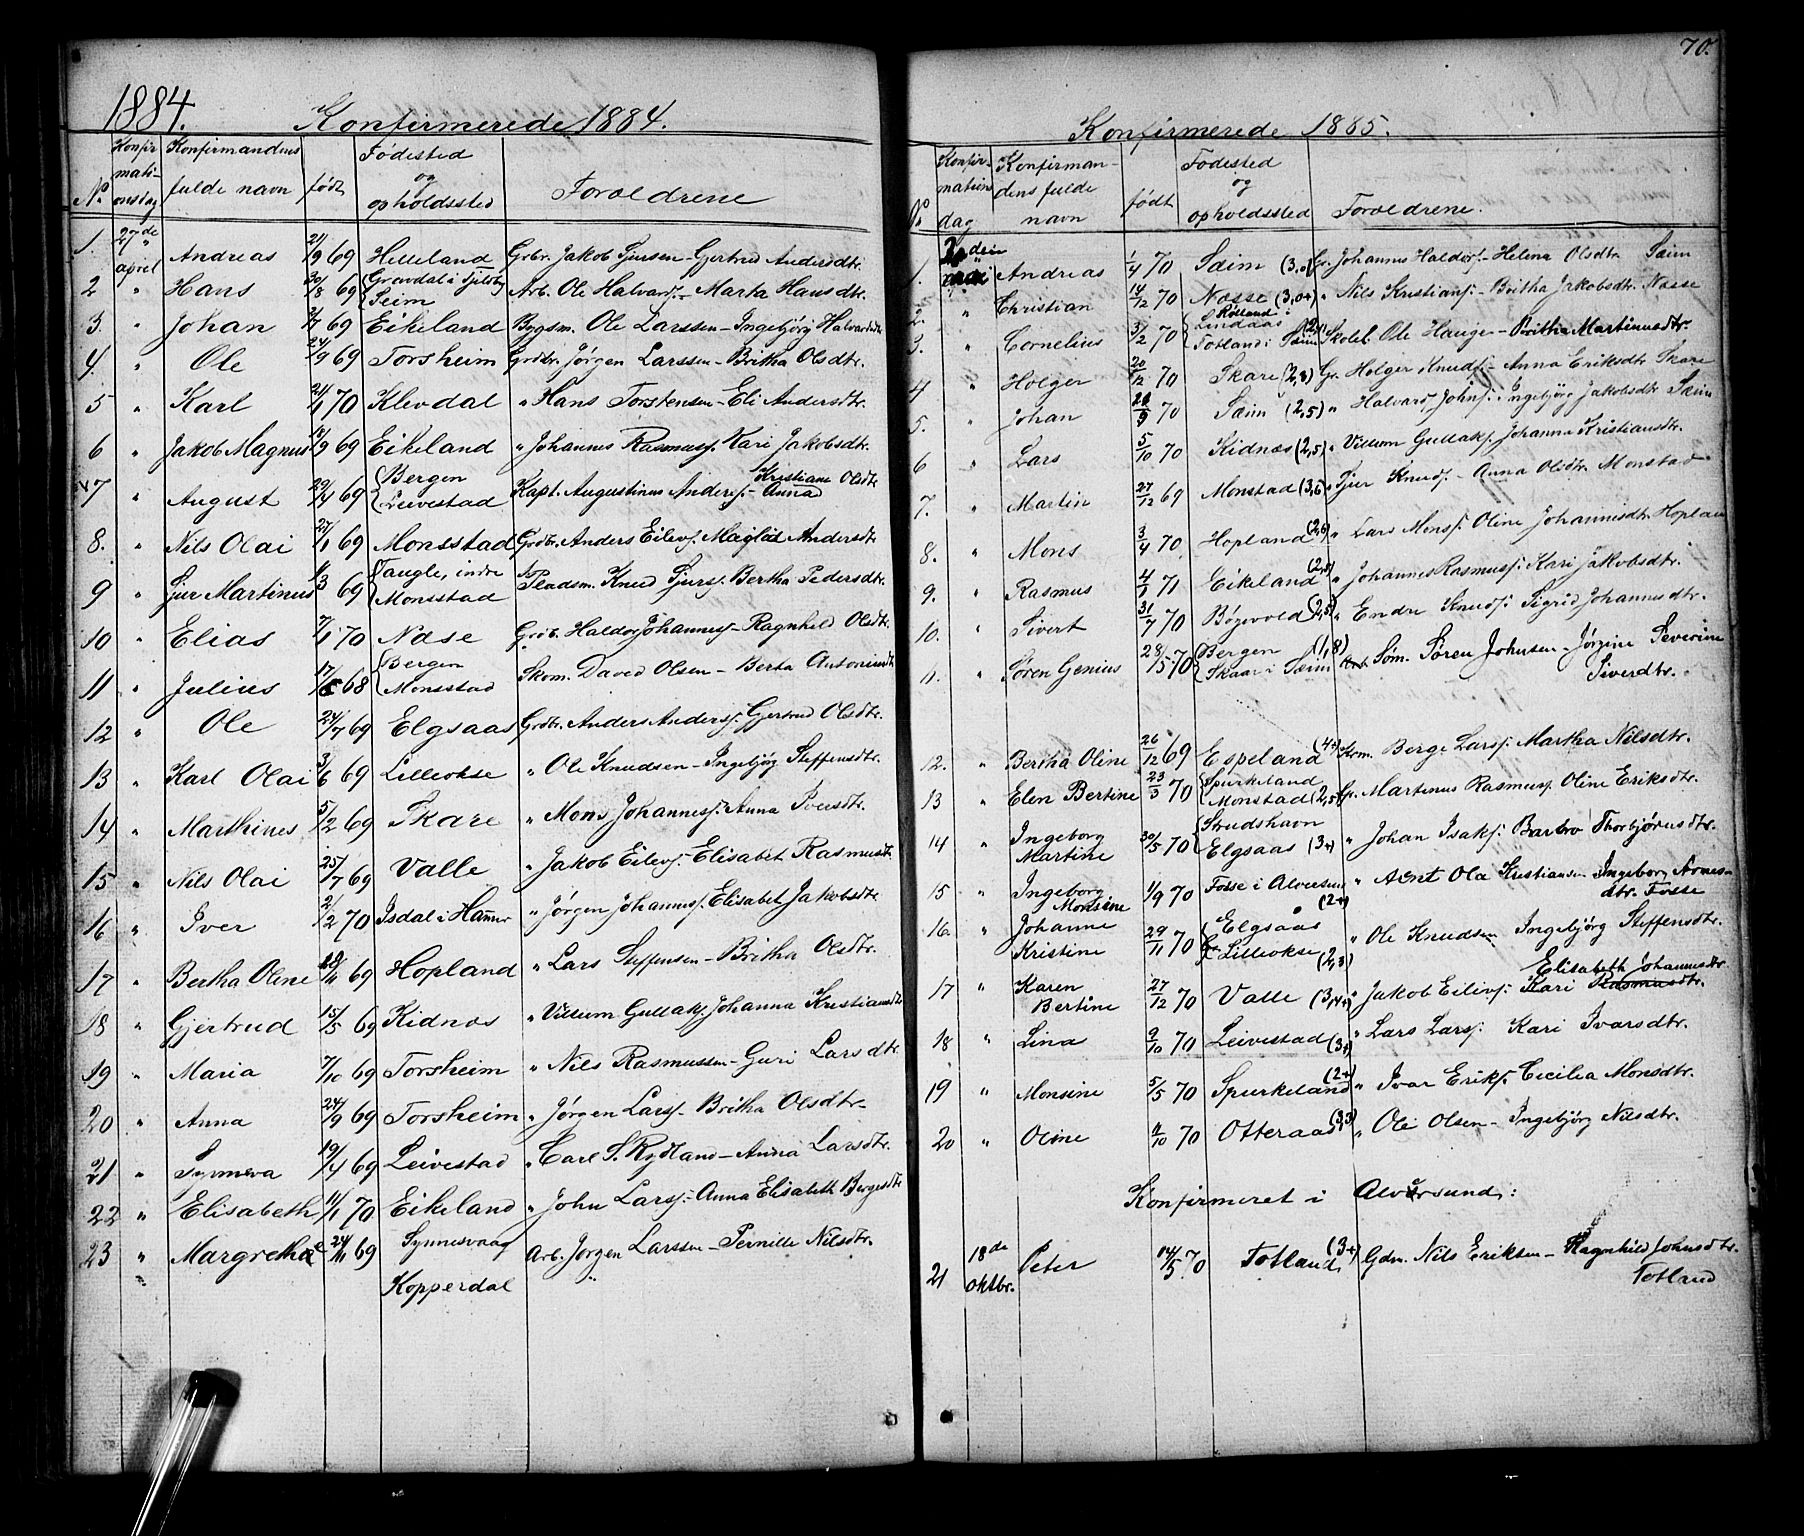 1884.
Konfirmerede 1884.
No Konfirmationsdag Konfirmandens fulde navn født Fødested og opholdssted Forældrene
1. 27de april Andreas 21/9 69 Helleland Grbr. Jakob Sjursen - Gjertrud Andersdtr.
2 " Hans 30/8 69 Seim Arb. Ole Halvards. - Marta Hansdtr.
3. " Johan 69 Eikeland Bygsm. Ole Larssen - Ingebjörg Halvardsdtr
4. " Ole 24/9 69 Torsheim Grdbr. Jörgen Larssen - Britha Olsdtr.
5 " Karl 21/1 70 Klevdal " Hans Torstensen - Eli Andersdtr.
6 " Jakob Magnus 18/9 69 Eikeland " Johannes Rasmuss. Kari Jakobsdtr.
7 " August 29/4 69 Bergen Leivestad Kapt. Augustinus Anders. - Anna Kristiane Olsdtr
8. " Nils Olai 27/1 69 Monsstad Grdbr. Anders Eilevs. Andersdtr
9 " Sjur Martinus 69 Monsstad Pladsm. Knud Sjurs. Bertha Pedersdtr.
10 " Elias 7/1 70 Næse Grdb. Haldor Johanness. - Ragnhild Olsdtr.
11 " Julius 68 Bergen Monsstad Skom. David Olsen - Berta Antonius
12 " Ole 24/7 69 Elgsaas Grdbr. Anders Anders. Gjertrud Olsdtr.
13 " Karl Olai 3/6 69 Lilleokse " Ole Knudsen - Ingebjög Steffensdtr.
14 " Marthines 5/2 69 Skare " Mons Johanness. Anna Iversdtr.
15 " Nils Olai 25/7 69 Valle " Jakob Eilevs. Elisabet Rasmusdt.
16 " Iver 2/2 70 Isdal i Hammer " Jörgen Johanness. Elisabet Jakobsdtr
17 " Bertha Oline 69 Hopland " Lars Steffensen - Britha Olsdtr.
18 " Gjertrud 15/5 69 Kidnæs " Villum Gullaks. Johanna Kristiansdtr
19 " Maria 7/10 69 Torsheim " Nils Rasmussen - Guri Larsdtr.
20 " Anna 24/9 69 Torsheim " Jörgen Larss. Britha Olsdtr.
21 " Synneva 19/4 69 Leivestad " Carl S. Rydland - Anna Larsdtr.
22 " Elisabeth 11/1 70 Eikeland " John Larss. - Anna Elisabeth Bergesdtr
23 " Margretha 69 Synnesvaag Arb. Jörgen Larssen - Pernille Nilsdtr.
" Kopperdal "
70.
Konfirmerede 1885.
No Konfirmations dag Konfirmandens fulde navn født Fødested og opholdssted Forældrene.
1. Andreas 1/4 70 Sæim (3,0) Gr. Johannes Haldors. - Helena Olsdtr Sæim
2. " Christian 14/12 70 Næsse (3,0+) " Nils Kristians. - Britha Jakobsdtr. Næsse
3. " Cornelius 3/2 70 Lindaas Totland i Sæim Skolel. Ole Hauge - Britha Martinusdtr.
4 " Holger 20/12 70 Skare (2,8) Gr. Holger Knuds. - Anna Eriksdtr Skare
5. " Johan 70 Sæim (2,5) " Halvard Johns. Ingebjörg Jakobsdtr Sæim
6 " Lars 5/10 70 Kidnæs (2,5) " Villum Gullaks. Johanna Kristiansdtr.
7. " Martin 27/12 69 Monstad (3,6) " Sjur Knuds. - Anna Olsdtr Monstad
8. " Mons 3/4 70 Hopland " Lars Monss. Oline Johannesdtr Hopland
9. " Rasmus 4/1 71 Eikeland (2,5) " Johannes Rasmuss. Kari Jakobsdtr.
10. " Sivert 31/7 70 Bögevold (2,5) " Endre Knuds. Sigrid Johannesdtr.
11. " Sören Genius 28/5 70 Bergen (1,8) Skaar i Sæim Søm. Sören Johnsen - Jörgine Severine Siverdtr.
12. " Bertha Oline 26/12 69 Espeland (4+) Krm. Berge Larss. Martha Nilsdtr.
13 " Elen Bertine 23/3 70 Spurkeland Monstad (2,5) Gr. Martinus Rasmuss. Oline Eriksdtr.
14 " Ingeborg Martine 30/5 70 Strudshavn Elgsaas (3+) " Johan Isaks. Barbro Thorbjörnsdtr.
15 " Ingeborg Monsine 1/9 70 Fosse i Alversund (2+) " Arnt Ola Kristiansen Ingeborg Arnesdtr. Fosse
16 " Johanne Kristine 29/11 70 Elgsaas Lilleokse (2,3) " Ole Knudsen Ingebjörg Steffensdtr.
17 " Karen Bertine 27/12 70 Valle (3,4+) " Jakob Eilivs. Kari Rasmusdtr. Elisabeth Johannesdtr.
18 " Lina 9/10 70 Leivestad (3+) " Lars Larss. Kari Ivarsdtr.
19 " Monsine 5/5 70 Spurkeland (2+) " Ivar Eriks. Cecilia Monsdtr.
20 " Oline 11/10 70 Otteraas (3,3) " Ole Olsen - Ingebjörg Nilsdtr.
Konfirmeret i Alversund:
21 18de oktbr. Peter 14/5 70 Totland (3+) Gdm. Nils Eriksen - Ragnhild Johnsdtr. Totland